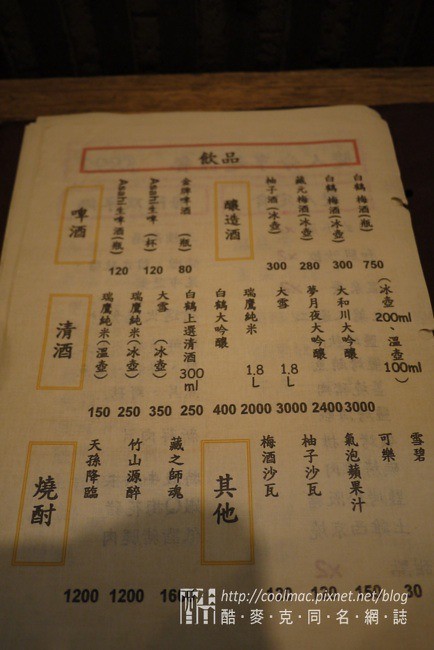 飲品
啤酒
Asahi生啤酒(瓶)
120
Asahi生啤(杯)
120
金牌啤酒(瓶)
80
釀造酒
柚子酒(冰壺)
300
藏元梅酒(冰壺)
280
白鶴梅酒(冰壺)
300
白鶴梅酒(瓶)
750
清酒
瑞鷹純米(溫壺)
150
瑞鷹純米(冰壺)
250
大雪(冰壺)
350
白鶴上選清酒300ml
250
白鶴大吟釀
400
瑞鷹純米 1.8L
2000
大雪 1.8L
3000
夢月夜大吟釀
2400
大和川大吟釀
3000
(冰壺200ml、溫壺100ml)
燒酎
天孫降臨
1200
竹山源醉
1200
藏之師魂
其他
梅酒沙瓦
柚子沙瓦
氣泡蘋果汁
150
可樂
雪碧
30
http://coolmac.pixnet.net/blog
酷·麥·克·同·名·網·誌